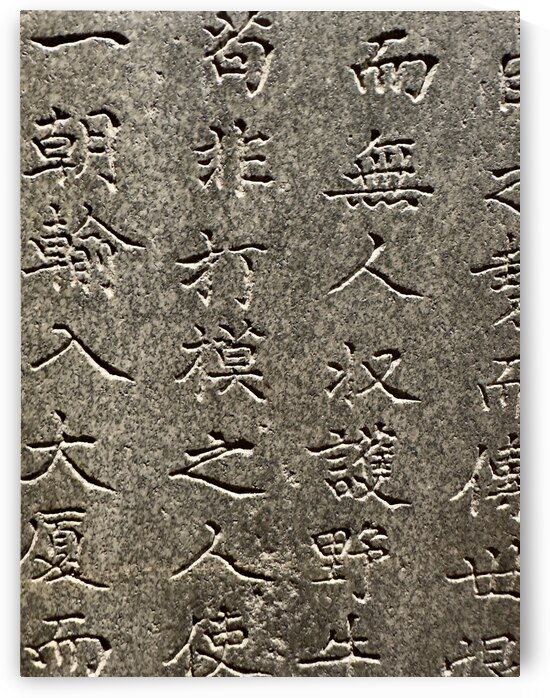 之而傳世
而無人収護野牛
苟非打模之人使
一朝輸入大厦而